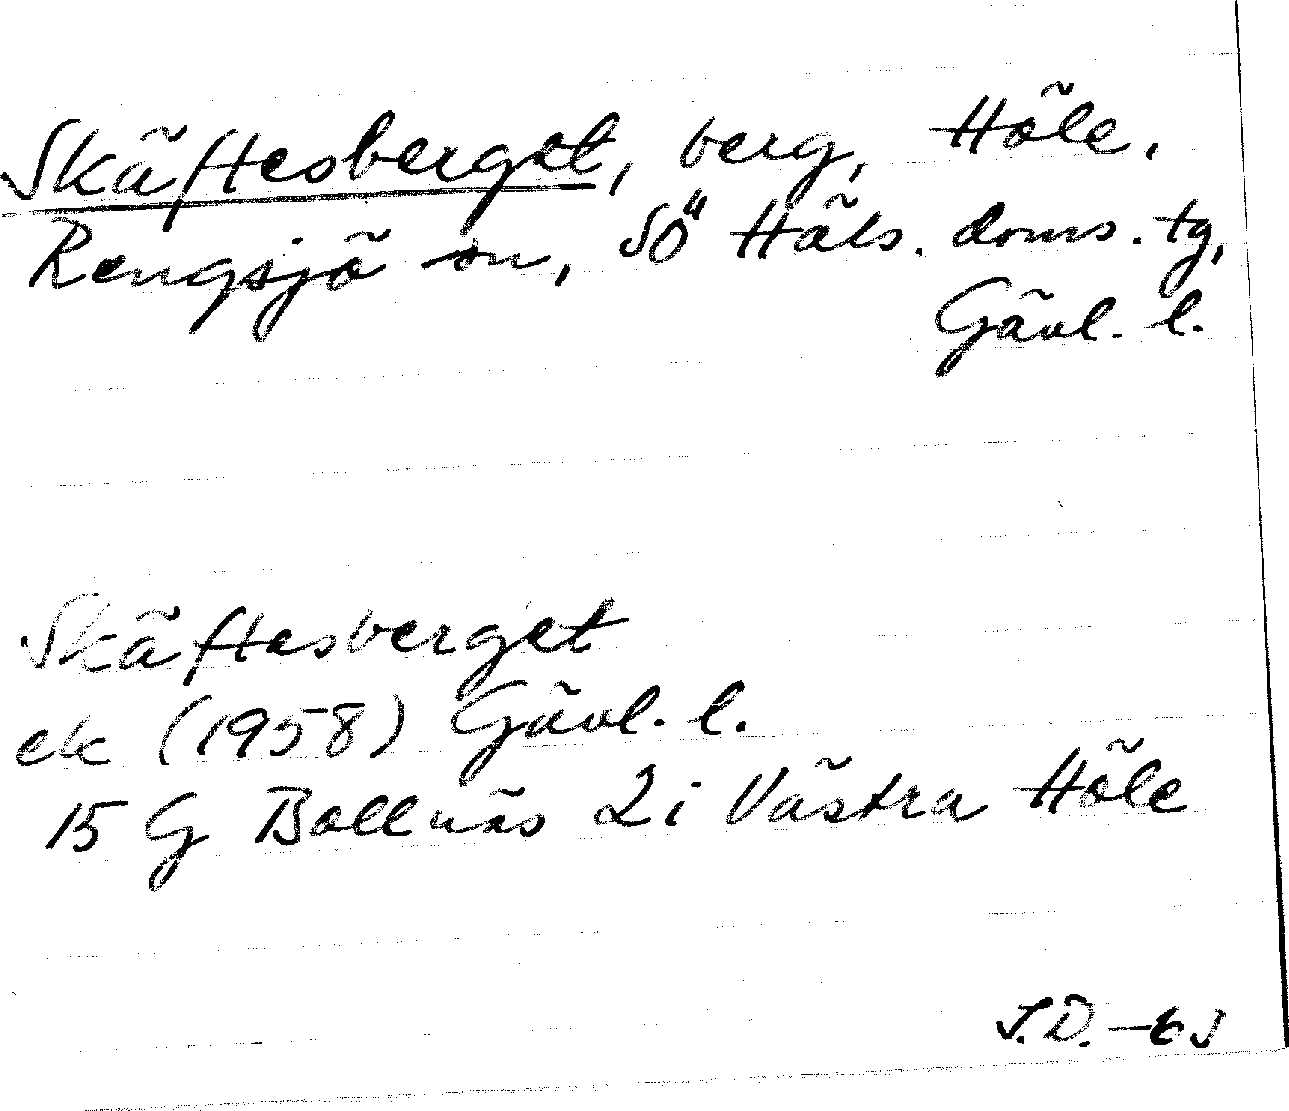 Skäftesberget, berg, Höle,
Rengsjö sn, SÖ Häls. doms. tg,
Gävl. l.
Skäftesberget
ek (1958) Gävl. l.
15 G Bollnäs 2i Västra Höle